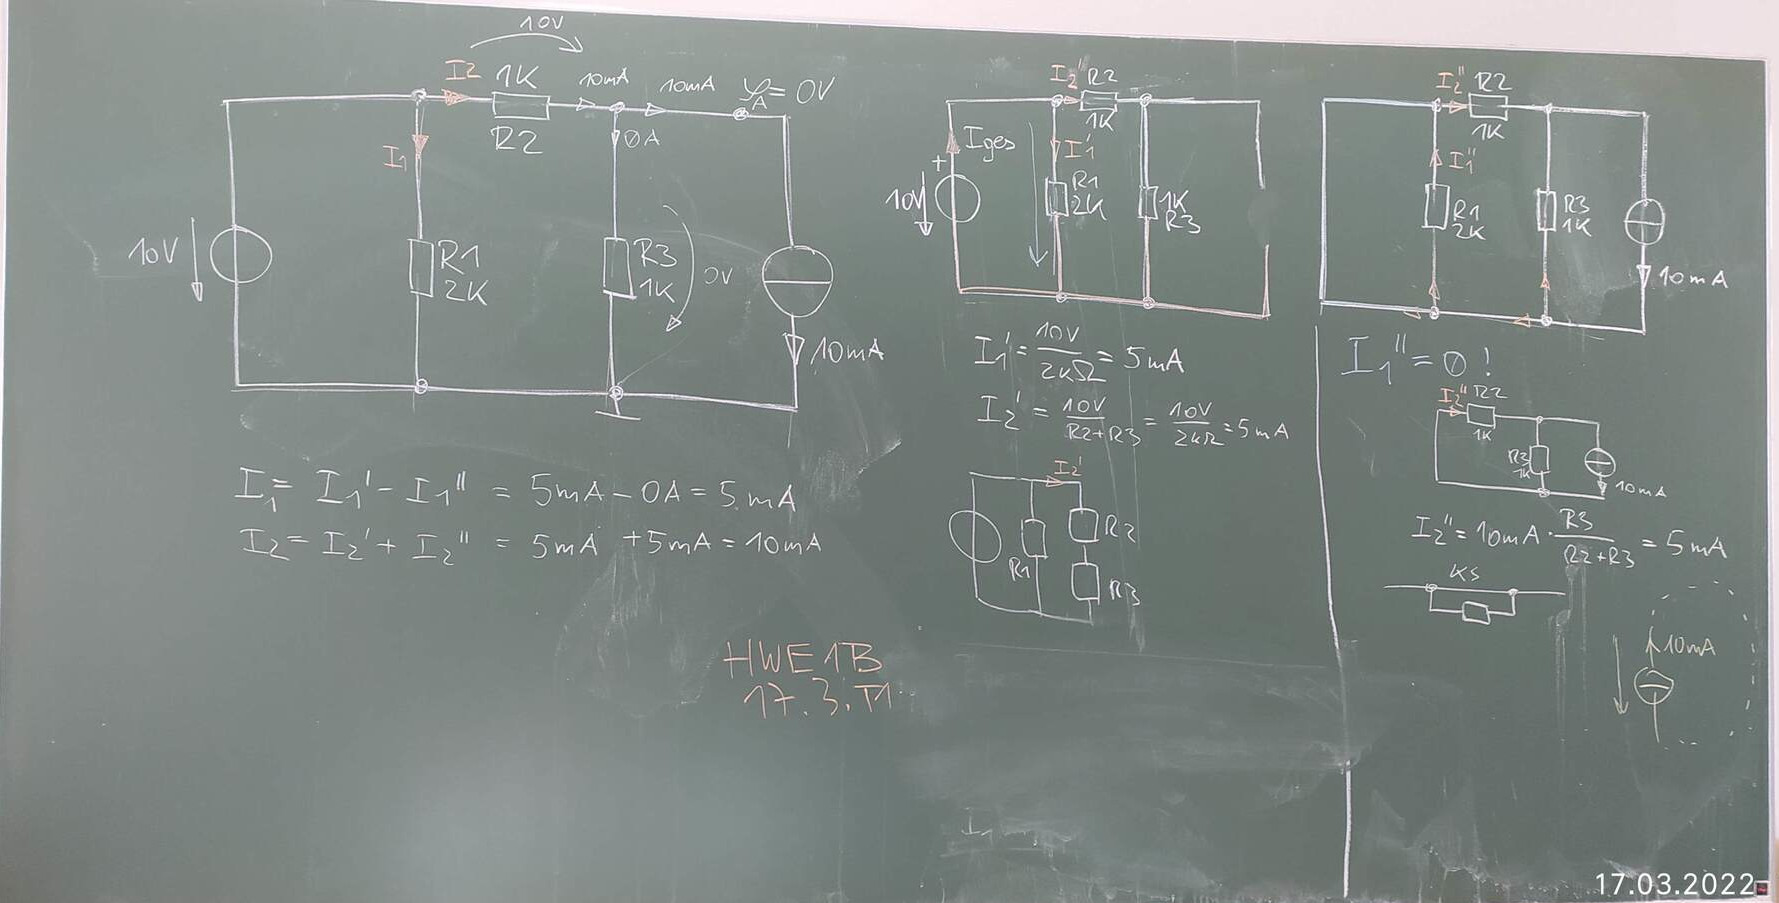 10V
I2 1K 10mA 10mA φA = 0V
R2
I1
0A
10V
R1
2K
R3
1K
0V
10mA
I1 = I1' - I1'' = 5mA - 0A = 5mA
I2 = I2' + I2'' = 5mA + 5mA = 10mA
HWE1B
17.3.T1
I2' R2
1K
Iges
I1'
+
10V
R1
2K
1K
R3
I1' = 10V / 2kΩ = 5mA
I2' = 10V / R2+R3 = 10V / 2kΩ = 5mA
I2'
R2
R1
R3
I1
I2'' R2
1K
I1''
R1
2K
R3
1K
10mA
I1'' = 0!
I2'' R2
1K
R3
1K
10mA
I2'' = 10mA · R3 / R2+R3 = 5mA
KS
10mA
17.03.2022